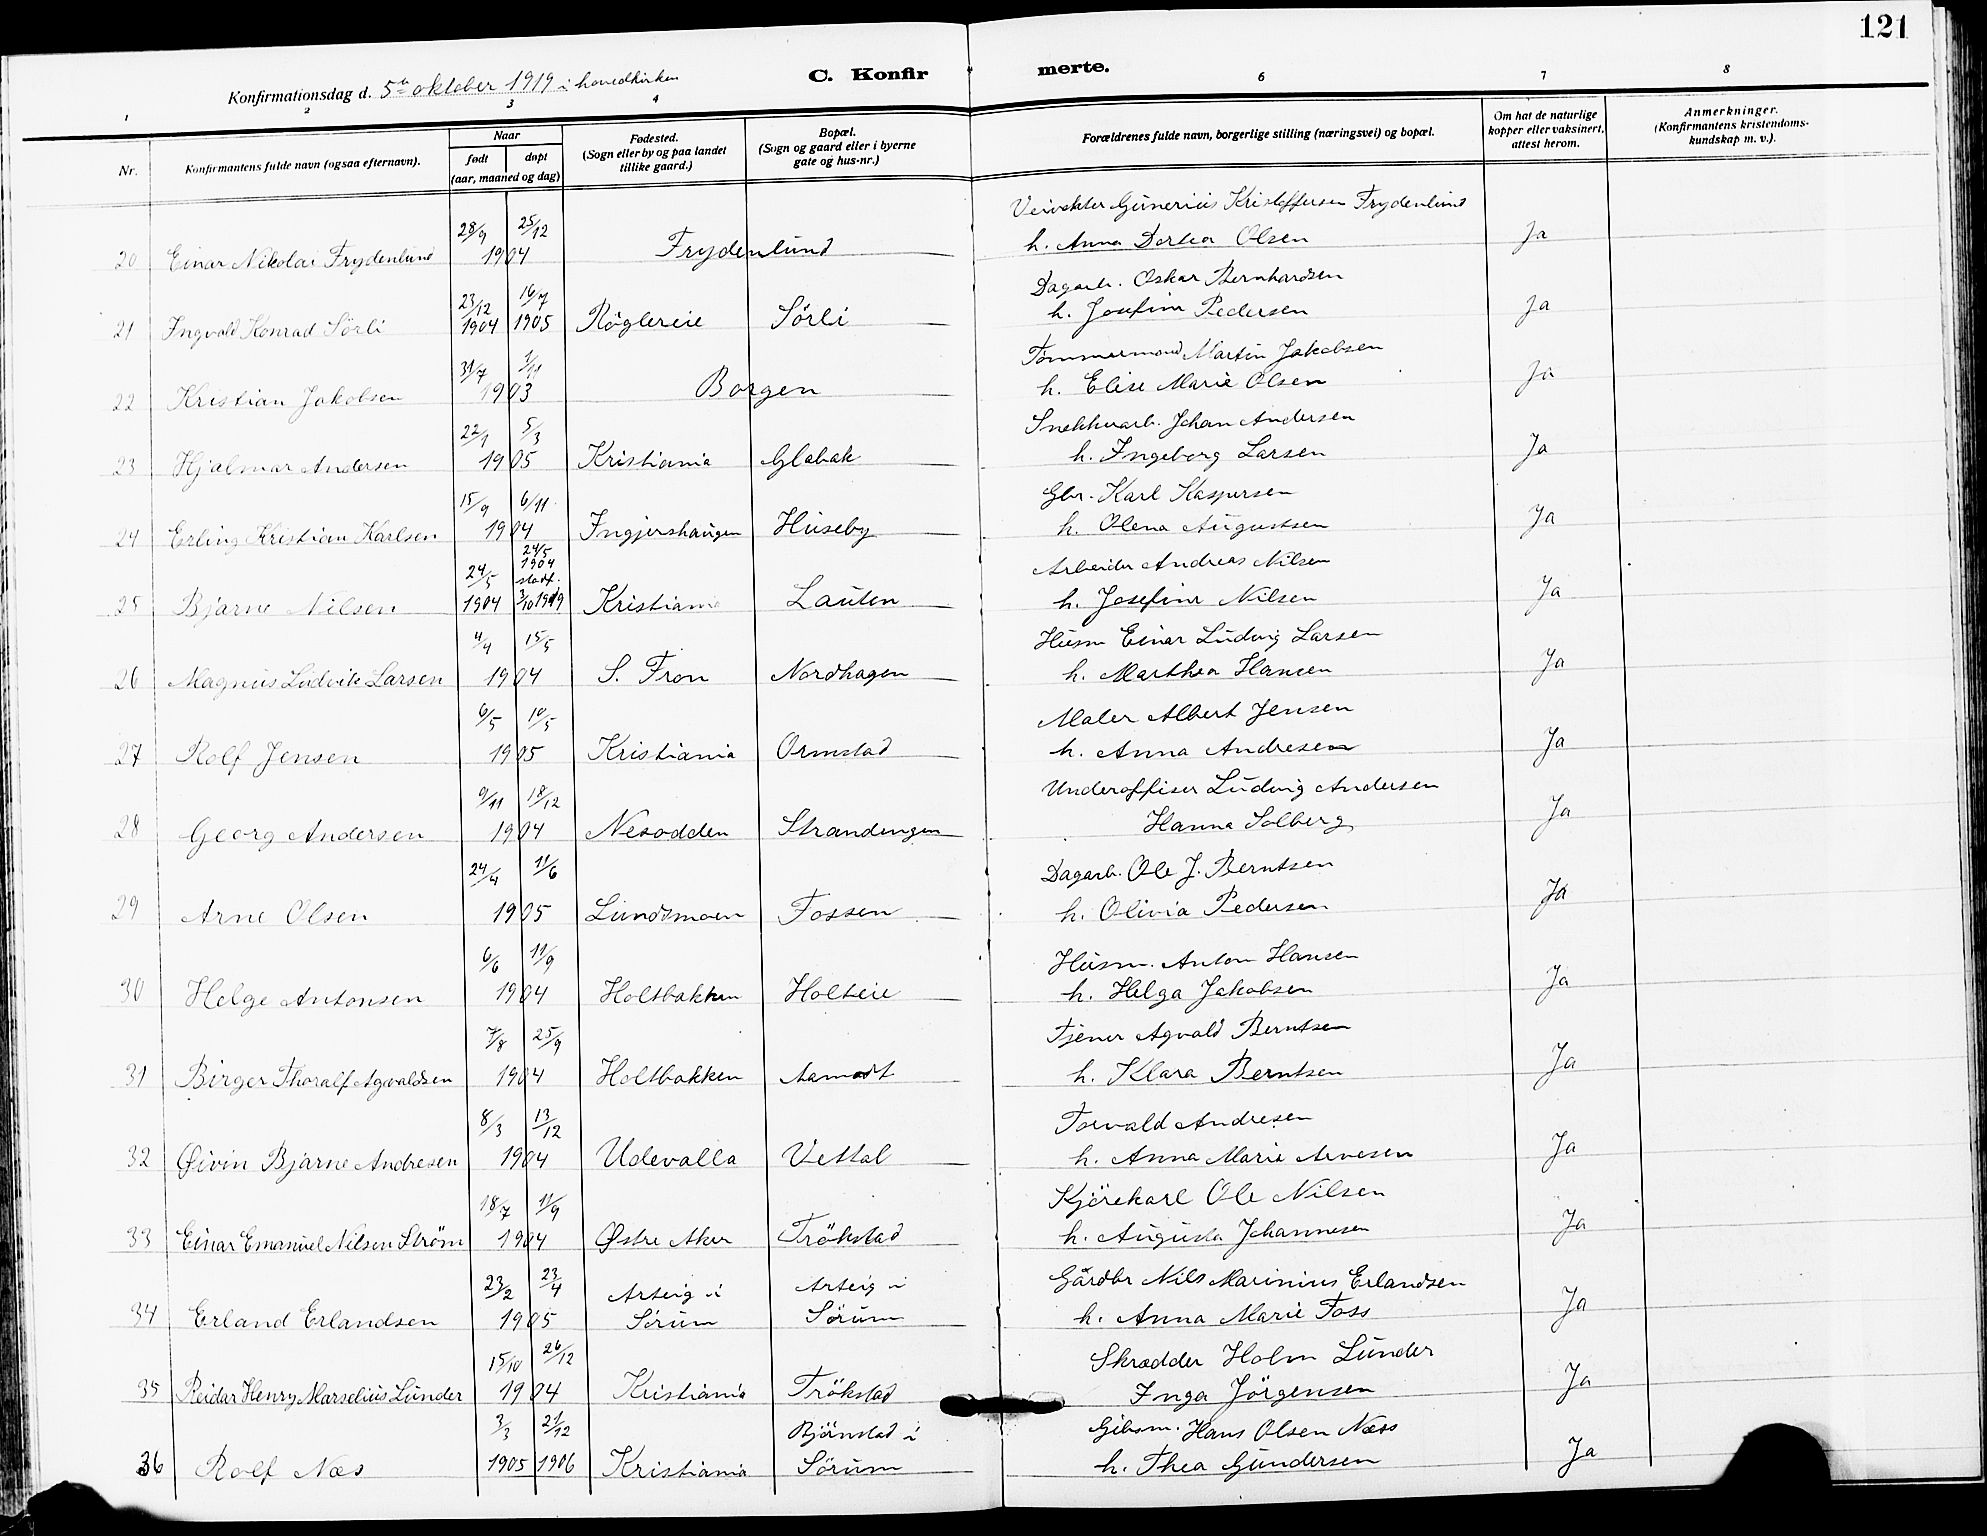 121
Konfirmationsdag d. 5te oktober 1919 i hovedkirken
C. Konfir merte.
1 2 3 4 6 7 8
Nr. Konfirmantens fulde navn (ogsaa efternavn). Naar født døpt (aar, maaned og dag) Fødested. (Sogn eller by og paa landet tillike gaard.) Bopæl. (Sogn og gaard eller i byerne gate og hus-nr.) Forældrenes fulde navn, borgerlige stilling (næringsvei) og bopæl. Om hat de naturlige kopper eller vaksinert, attest herom. Anmerkninger. (Konfirmantens kristendoms- kundskap m. v.).
28/9 25/12 Veivokter Gunerius Kristoffersen Frydenlund
20 Einar Nikolai Frydenlund 1904 Frydenlund h. Anna Dortea Olsen Ja
23/12 16/7 Dagarb. Oskar Bernhardsen
21 Ingvald Konrad Sörli 1904 1905 Röglereie Sörli h. Josefine Pedersen Ja
31/7 1/11 Tømmermand Martin Jakobsen
22 Kristian Jakobsen 1903 Borgen h. Elise Marie Olsen Ja
22/1 5/3 Snekkerarb. Johan Andersen
23 Hjalmar Andersen 1905 Kristiania Glabak h. Ingeborg Larsen Ja
15/9 6/11 Gbr. Karl Kaspersen
24 Erling Kristian Karlsen 1904 Ingjershaugen Huseby h. Olena Augustsen Ja
24/5 24/5 1904 stadf. Arbeider Andreas Nilsen
25 Bjarne Nilsen 1904 3/10 1919 Kristiania Lauten h. Josefine Nilsen Ja
4/4 15/5 Husm Einar Ludvig Larsen
26 Magnus Ludvik Larsen 1904 S. Fron Nordhagen h. Marthea Hansen Ja
6/5 10/5 Maler Albert Jensen
27 Rolf Jensen 1905 Kristiania Ormstad h. Anna Andresen Ja
9/11 18/12 Underoffiser Ludvig Andersen
28 Georg Andersen 1904 Nesodden Strandengen Hanna Solberg Ja
24/4 11/6 Dagarb. Ole J. Berntsen
29 Arne Olsen 1905 Lundsmoen Fossen h. Olivia Pedersen Ja
6/6 11/9 Husm. Anton Hansen
30 Helge Antonsen 1904 Holtbakken Holteie h. Helga Jakobsen Ja
7/8 25/9 Tjener Agvald Berntsen
31 Birger Thoralf Agvaldsen 1904 Holtbakken Aamodt h. Klara Berntsen Ja
8/3 13/12 Torvald Andresen
32 Øivin Bjarne Andresen 1904 Udevalla Vettal h. Anna Marie Arvesen Ja
18/7 11/9 Kjörekarl Ole Nilsen
33 Einar Emanuel Nilsen Ström 1904 Østre Aker Trökstad h. Augusta Johannesen Ja
23/2 23/4 Arteig i Arteig i Gårdbr Nils Marinius Erlandsen
34 Erland Erlandsen 1905 Sörum Sörum h. Anna Marie Foss Ja
15/10 26/12 Skrædder Holm Lunder
35 Reidar Henry Marselius Lunder 1904 Kristiania Trökstad Inga Jörgensen Ja
3/3 21/12 Björnstad i Hans Olsen Næss
36 Rolf Næs 1905 1906 Kristiania Sörum h. Thea Gundersen Ja